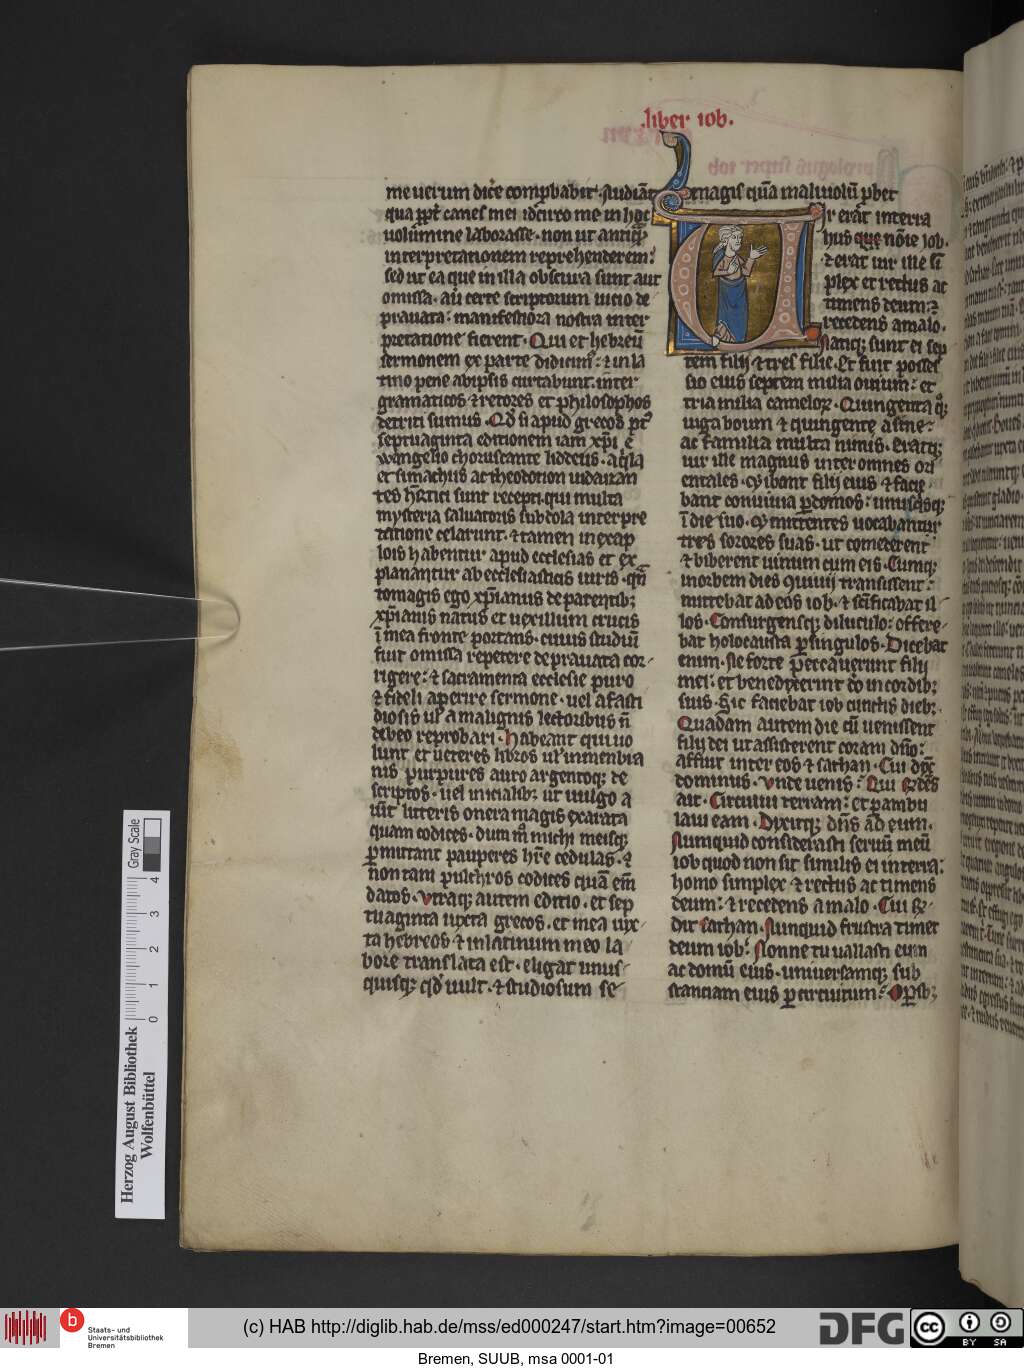 liber iob.
me uerum dicere comprobabit. Audiāt
qua ppt̄ canes mei idcirco me in hoc
uolumine laborasse. non ut antiquā
interpretationem reprehenderem:
sed ut ea que in illa obscura sunt aut
omissa. aut certe scriptorum uicio de
prauata: manifestiora nostra inter
pretatione fierent. Qui et hebreū
sermonem ex parte didicim': & in la
tino pene ab ipsis cunabul. inter
gramaticos & retores et philosophos
detriti sumus. Qd si apud grecos pt'
septuaginta editionem iam xpi e
wangelio choruscante iudeus. aq̄la
et simachus ac theodotion iudaizan
tes heretici sunt recepti. qui multa
mysteria saluatoris subdola interpre
tatione celarunt. & tamen in exap
lois habentur apud ecclesias et ex
planantur ab ecclesiasticis uiris. qn̄
to magis ego xp̄ianus de parentib;
xp̄ianis natus et uexillum crucis
ī mea fronte portans. cuius studiū
fuit omissa repetere deprauata cor
rigere: & sacramenta ecclesie puro
& fideli aperire sermone. uel a fasti
diosis ul' a malignis lectoribus n̄
debeo reprobari. Habeant qui uo
lunt et ueteres libros ul' in menbra
nis purpureis auro argentoq; de
scriptos. uel inicialib; ut uulgo a
iūt litteris onera magis exarata
quam codices. dum m̄ michi meisq;
pmittant pauperes hr̄e cedulas. &
non tam pulchros codices quā em̄
datos. Vtraq; autem editio. et sep
tuaginta iuxta grecos. et mea iux
ta hebreos & in latinum meo la
bore translata est. eligat unus
quisq; qd uult. & studiosum se
magis quā maliuolū pbet
Ir erat in terra
hus que nōie Iob.
& erat uir ille sī
plex et rectus ac
timens deum: &
recedens a malo.
Natiq; sunt ei sep
tem filij & tres filie. Et fuit posses
sio eius septem milia ouium: et
tria milia camelor. Quingenta q;
iuga boum & quingente asine:
ac familia multa nimis. Eratq;
uir ille magnus inter omnes ori
entales. Et ibant filij eius & facie
bant conuiuia p domos: unusqsq;
ī die suo. Et mittentes uocabantur
tres sorores suas. ut comederent
& biberent uinum cum eis. Cumq;
in orbem dies conuiuij transissent:
mittebat ad eos iob. & scīficabat il
los. Consurgensq; diluculo: offere
bat holocausta p singulos. Dicebat
enim. Ne forte peccauerunt filij
mei: et benedixerint dō in cordib;
suis. Sic faciebat iob cunctis dieb;
Quadam autem die cū uenissent
filij dei ut assisterent coram dn̄o:
affuit inter eos & sathan. Cui dix̄
dominus. Vnde uenis? Qui r̄ndens
ait. Circuiui terram: et pambu
laui eam. Dixitq; dn̄s ad eum.
Numquid considerasti seruū meū
iob quod non sit similis ei in terra:
homo simplex & rectus ac timens
deum: & recedens a malo. Cui rn̄
dit sathan. Nunquid frustra timet
deum iob? Nonne tu uallasti eum
ac domū eius. uniuersamq; sub
stanciam eius p circuitum? Opib;
Herzog August Bibliothek
Wolfenbüttel
0 1 2 3 4
Gray Scale
b Staats- und
Universitätsbibliothek
Bremen
(c) HAB http://diglib.hab.de/mss/ed000247/start.htm?image=00652
DFG
cc BY SA
Bremen, SUUB, msa 0001-01